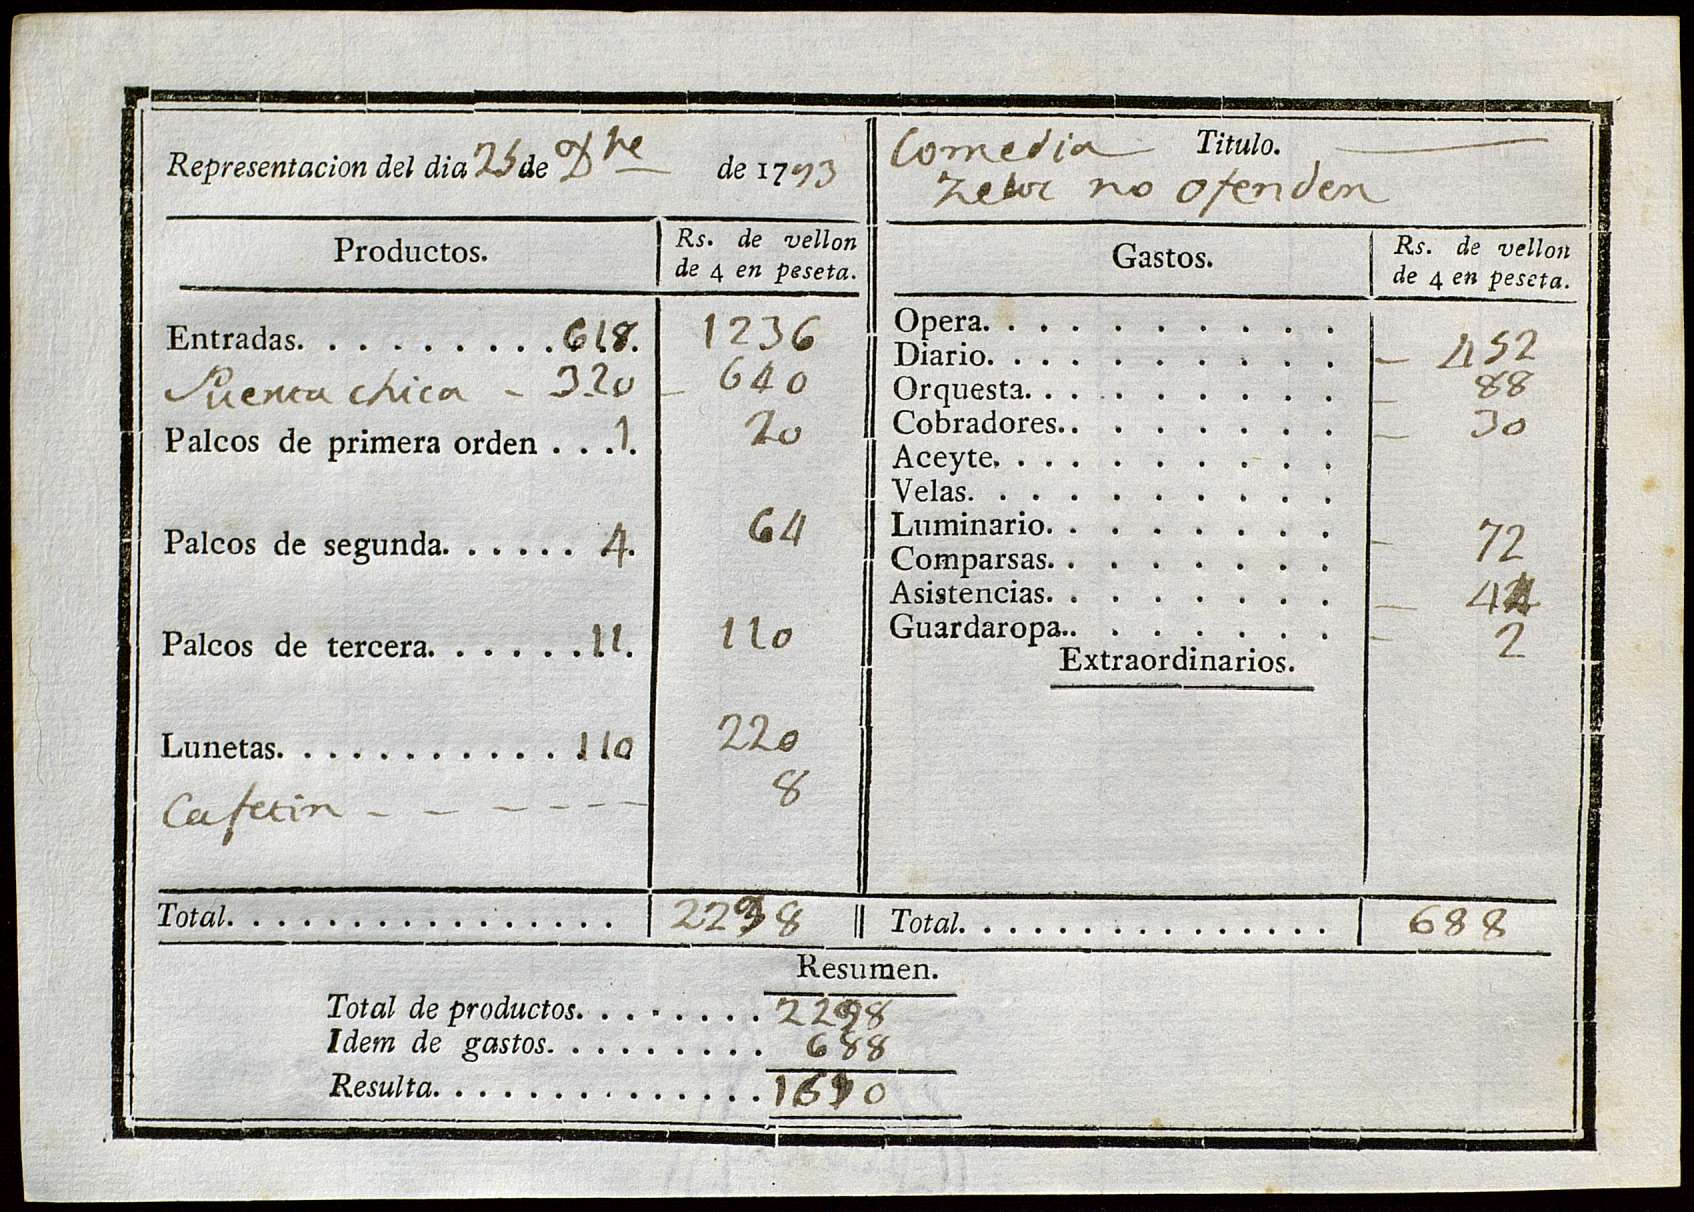 Representacion del dia 25 de de 1793
Comedia Titulo.
Zelos no ofenden
Productos. Rs. de vellon de 4 en peseta.
Entradas. . . . . . . . . . 618. 1236
Puerta chica - 320 - 640
Palcos de primera orden . . . 1. 20
Palcos de segunda. . . . . . 4. 64
Palcos de tercera. . . . . . . 11. 110
Lunetas. . . . . . . . . . . . 110 220
Cafetin - - - - - - - 8
Total. . . . . . . . . . . . . . . . 2298
Gastos. Rs. de vellon de 4 en peseta.
Opera. . . . . . . . . .
Diario. . . . . . . . . . - 452
Orquesta. . . . . . . . . - 88
Cobradores.. . . . . . . - 30
Aceyte. . . . . . . . . .
Velas. . . . . . . . . .
Luminario. . . . . . . . - 72
Comparsas. . . . . . . .
Asistencias. . . . . . . . - 44
Guardaropa.. . . . . . . - 2
Extraordinarios.
Total. . . . . . . . . . . . . . . 688
Resumen.
Total de productos. . . . . . . . 2298
Idem de gastos. . . . . . . . . . 688
Resulta. . . . . . . . . . . . . . 1610